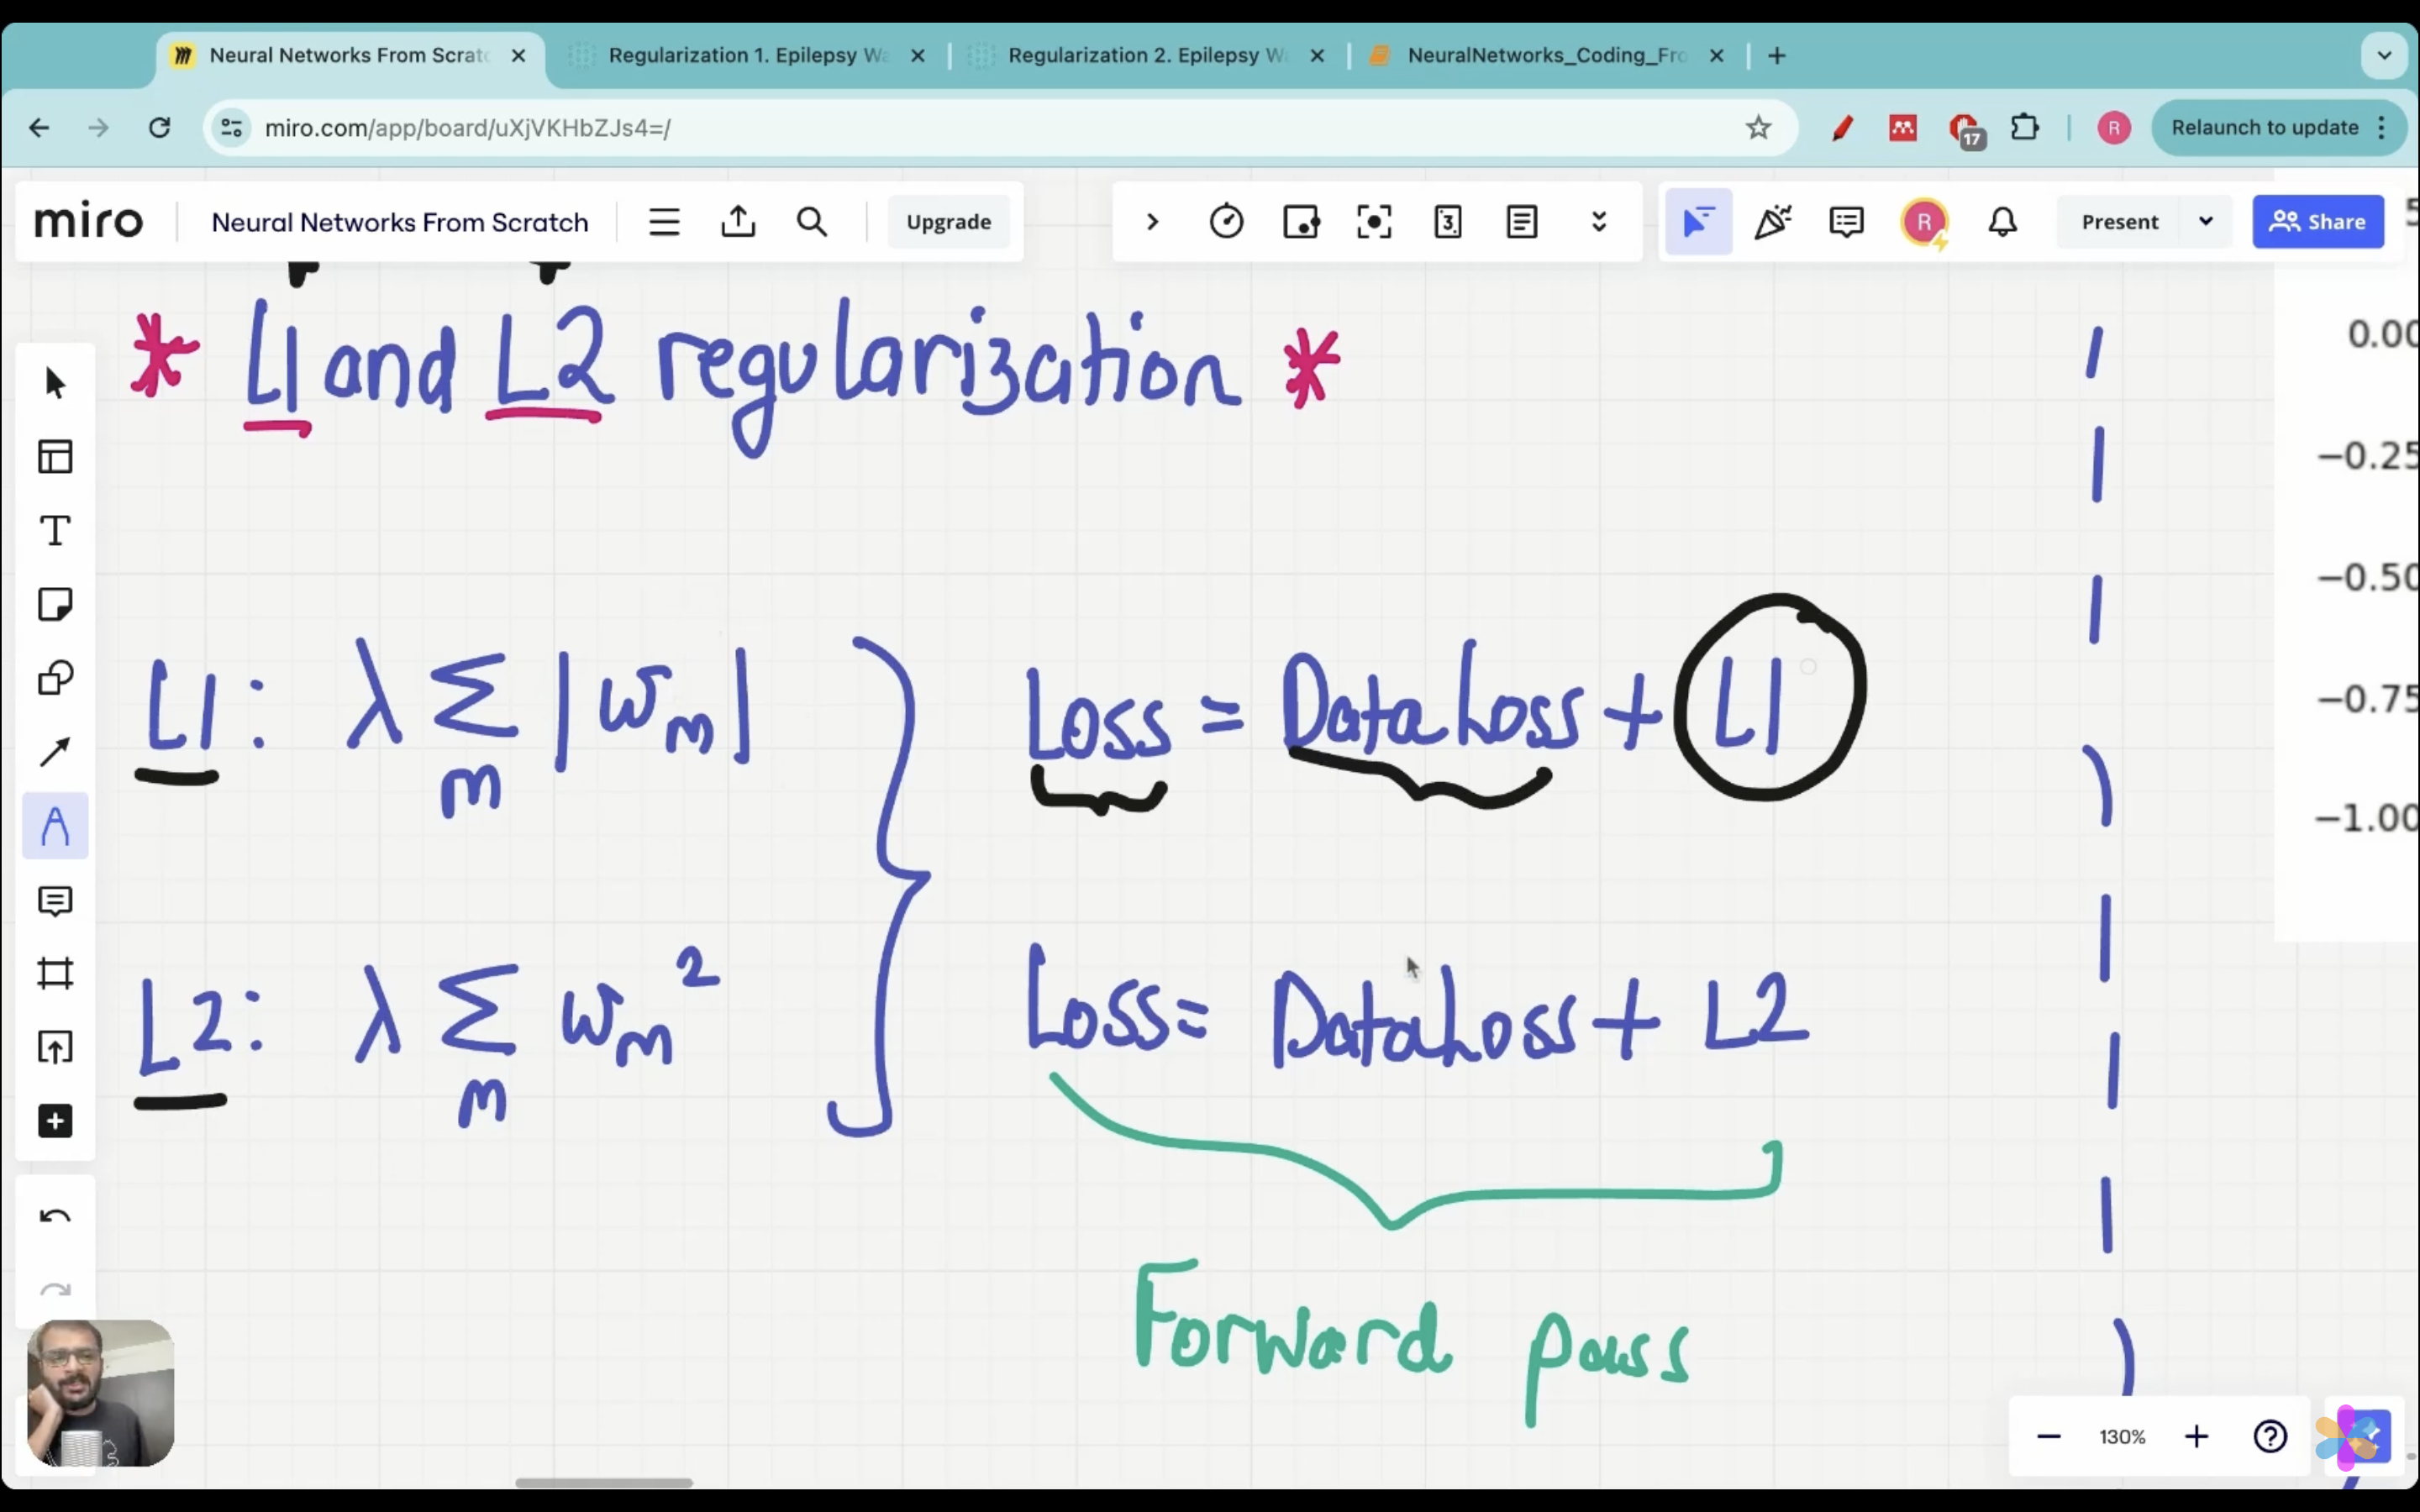 Neural Networks From Scratc
Regularization 1. Epilepsy Wa
Regularization 2. Epilepsy W
NeuralNetworks_Coding_Fro
miro.com/app/board/uXjVKHbZJs4=/
17
R
Relaunch to update
miro
Neural Networks From Scratch
Upgrade
3
R
Present
Share
5
* L1 and L2 regularization *
0.00
−0.25
−0.50
−0.75
−1.00
L1: λ Σ |wm|
m
Loss = DataLoss + L1
L2: λ Σ wm²
m
Loss = DataLoss + L2
Forward pass
130%